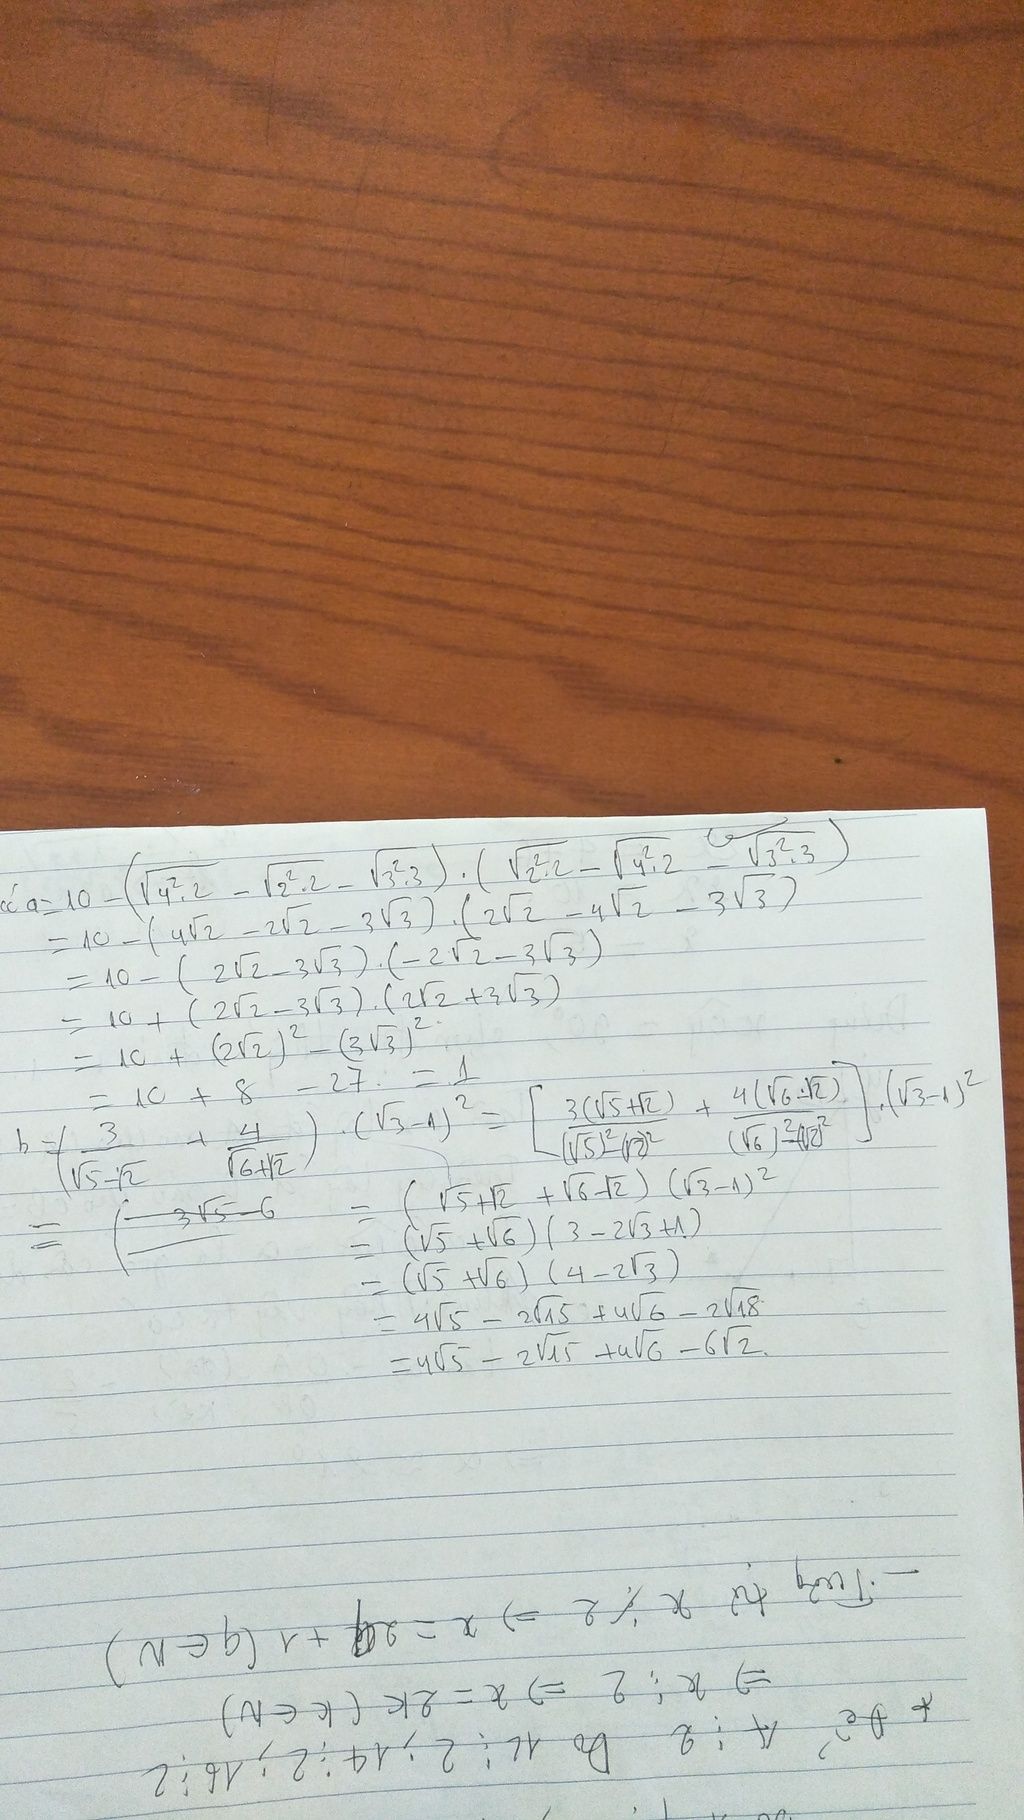 a = 10 - (√4².2 - √2².2 - √3².3) . (√2².2 - √4².2 - √3².3)
= 10 - (4√2 - 2√2 - 3√3) . (2√2 - 4√2 - 3√3)
= 10 - (2√2 - 3√3) . (-2√2 - 3√3)
= 10 + (2√2 - 3√3) . (2√2 + 3√3)
= 10 + (2√2)² - (3√3)²
= 10 + 8 - 27. = 1
b = (3/(√5-√2) + 4/(√6+√2)) . (√3-1)² = [3(√5+√2)/((√5)²-(√2)²) + 4(√6-√2)/((√6)²-(√2)²)] . (√3-1)²
= (3√5-6
= (√5+√2 + √6-√2) (√3-1)²
= (√5+√6) (3-2√3+1)
= (√5+√6) (4-2√3)
= 4√5 - 2√15 + 4√6 - 2√18
= 4√5 - 2√15 + 4√6 - 6√2.
* Để A ⋮ 2 Do 12 ⋮ 2; 14 ⋮ 2; 16 ⋮ 2
⇒ x ⋮ 2 ⇒ x = 2k (k ∈ N)
- Tương tự x ⋮̸ 2 ⇒ x = 2q + 1 (q ∈ N)